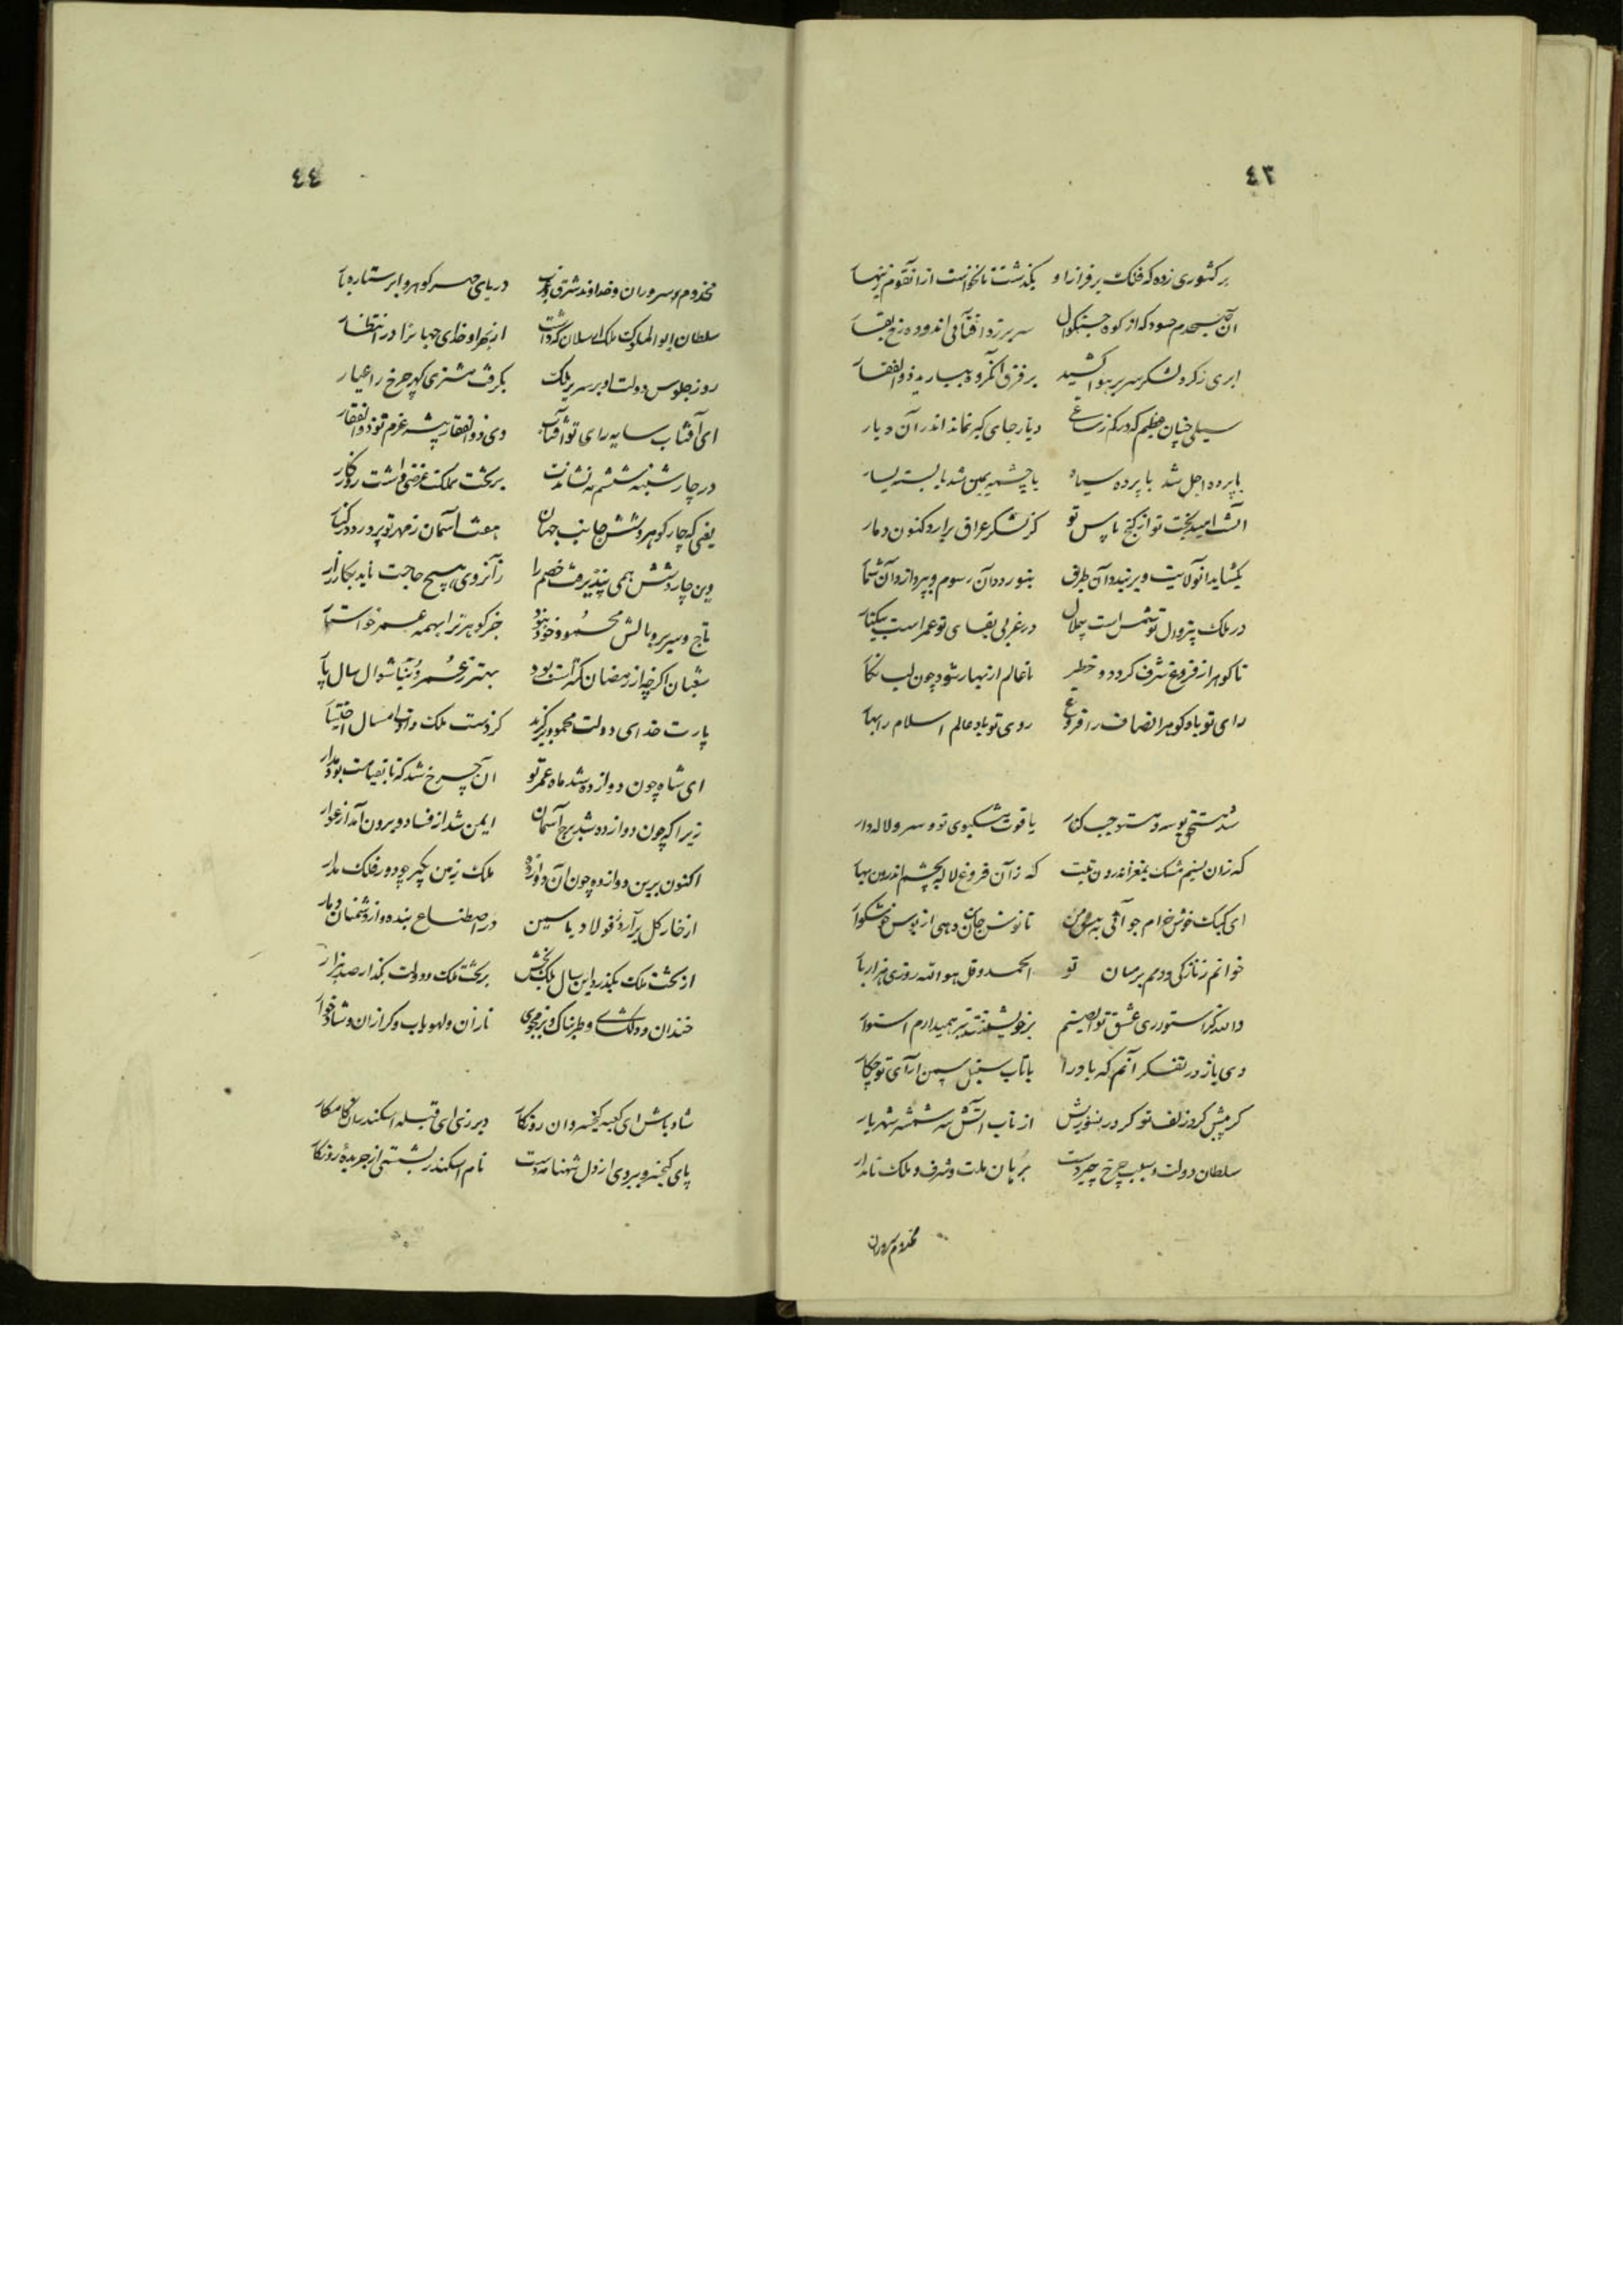 ٤٣
بر کشوری زده که فلک بر فراز او بگذشت تا نخواست از آنقوم زینهار
آن صبحدم حسود که از کوه سر برزد آفتابی اندوده رخ بقار
ابری ز کرد لشکر سر بر هوا کشید بر فرق آنگروه ببارید ذوالفقار
سیلی چنان عظیم که دیار جای کیر نماند اندر آن دیار
با پرده اجل شد با پرده سیاه یا چشمه یمین شد یا بسته یسار
بخت تو از کنج پاس تو کز لشکر عراق برآرد کنون دمار
بگشاید آنولایت و بر بندد آن طرق بنوردد آن رسوم و بپردازد آن شمار
در ملک بیزوال تو شمس است در عز بی بقای تو عمر است بیکنار
تا کوهر از فروغ شرف کردد و خطر تا عالم از بهار شود چون لب نگار
رای تو باد کوهر انصاف را فروغ روی تو باد عالم اسلام را بهار
شد مستحق بوسه و مستوجب کنار یاقوت مشکبوی تو و سرو لاله‌دار
که زان نسیم مشک بمغز اندرون که زآن فروغ لاله بچشم اندرون بهار
ای کبک خوش خرام جو آئی به پیش من تا نوش جان دهی از بوس خوشگوار
خوانم ز نازکی و دمم بر میان تو الحمد و قل هو الله روزی هزار بار
والله کز استواری عشق تو بر خویشتن همیدارم استوار
دی باز در تفکر آنم که باد را با تاب سنبل سمن آرای تو چکار
کر پیش کرد زلف تو کر در بنورش از تاب آتش شه شمشر شهریار
سلطان دولت و سبب چرخ چیره‌دست برهان ملت و شرف و ملک نامدار
مخدوم سروران
٤٤
مخدوم سروران و خداوند شرق و غرب دریای مهر کوهر و ابر ستاره بار
سلطان ابوالملوک ملک ارسلان که داشت از بهر او خدای جهانرا در انتظار
روز جلوس دولت او بر سریر ملک بکرفت مشتری کهر چرخ را عیار
ای آفتاب سایه رای تو آفتاب وی ذوالفقار پیشه عزم تو ذوالفقار
در چار شنبه ششم مه نشاندت بر تخت مملکت غرضی داشت روزگار
یعنی که چار کوهر و شش جانب جهان هفت آسمان ز مهر تو پرورد در کنار
وین چار و شش همی بپذیرفت خصم را زآنروی هیچ حاجت ناید بکارزار
تاج و سریر و بالش محمود خود نبود جز کوهر ترا بهمه عمر خواستار
شعبان اگرچه از رمضان کمتر است بود بهتر ز عمر دنیا شوال سال پار
پارت خدای دولت محمود برکزید کردست ملک و دادت امسال اختیار
ای شاه چون دوازده شد ماه عمر تو آن چرخ شد که تا بقیامت بود مدار
زیرا که چون دوازده شد برج آسمان ایمن شد از فساد و برون آمد از عوار
اکنون برین دوازده چون آن دوازده ملک زمین بگیر چو دور فلک مدار
از خار کل برآر و ز فولاد یاسمین در اصطناع بنده و از دشمنان دمار
از تخت ملک بگذرد این سال ملک بخش بر تخت ملک و دولت بگذار صد هزار
خندان و دلگشای و طربناک و بزمجوی نازان و لهو یاب و کرازان و شادخوار
شاد باش ای کعبه کیخسروان روزگار دیر زی ای قبله اسکندران کامکار
پای کیخسرو ببردی از دل شهنامه دوست نام اسکندر بشستی از جریده روزگار